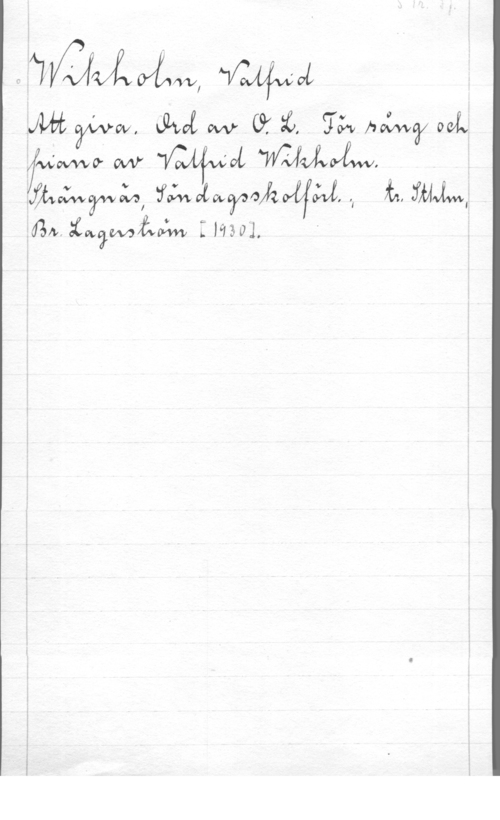 Wikholm, Valfrid
Att giva. Ord av O. L. För sång och
piano av Valfrid Wikholm.
Strängnäs, Söndagsskolförl., tr. Sthlm,
Br. Lagerström [1930].